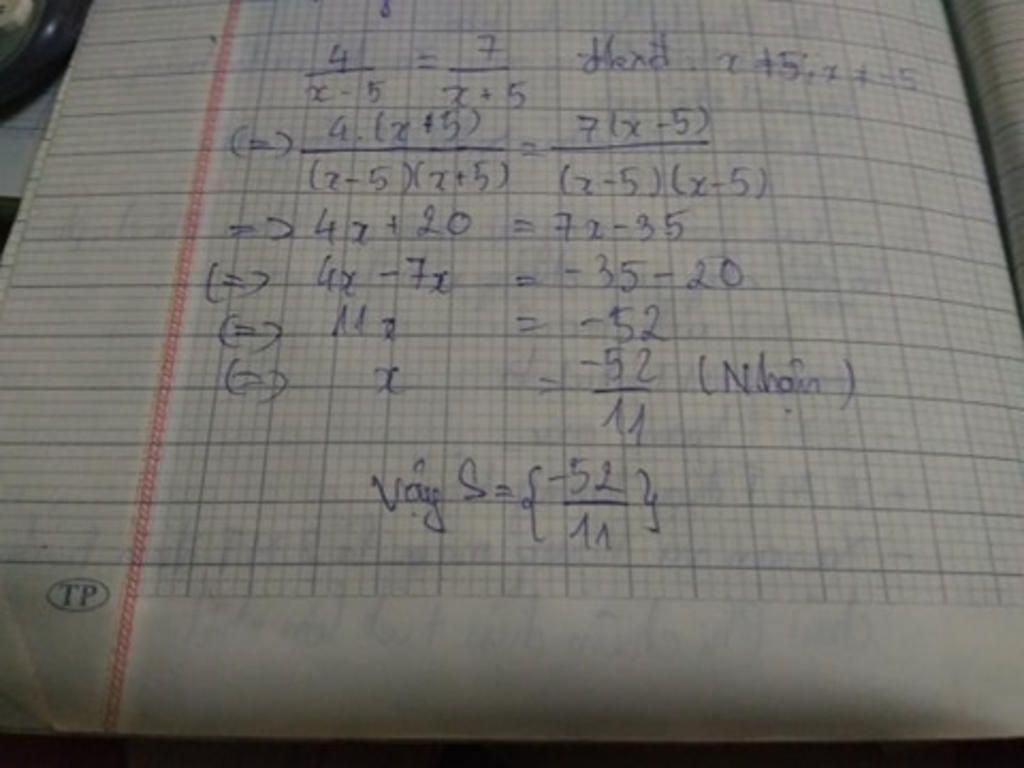 4/(x - 5) = 7/(x + 5) x ≠ 5; x ≠ -5
(=> 4.(x+5)/((x-5)(x+5)) = 7(x-5)/((x-5)(x-5))
=> 4x + 20 = 7x - 35
(=> 4x - 7x = -35 - 20
(=> 11x = -52
(=> x = -52/11 (Nhận)
Vậy S = {-52/11}
TP